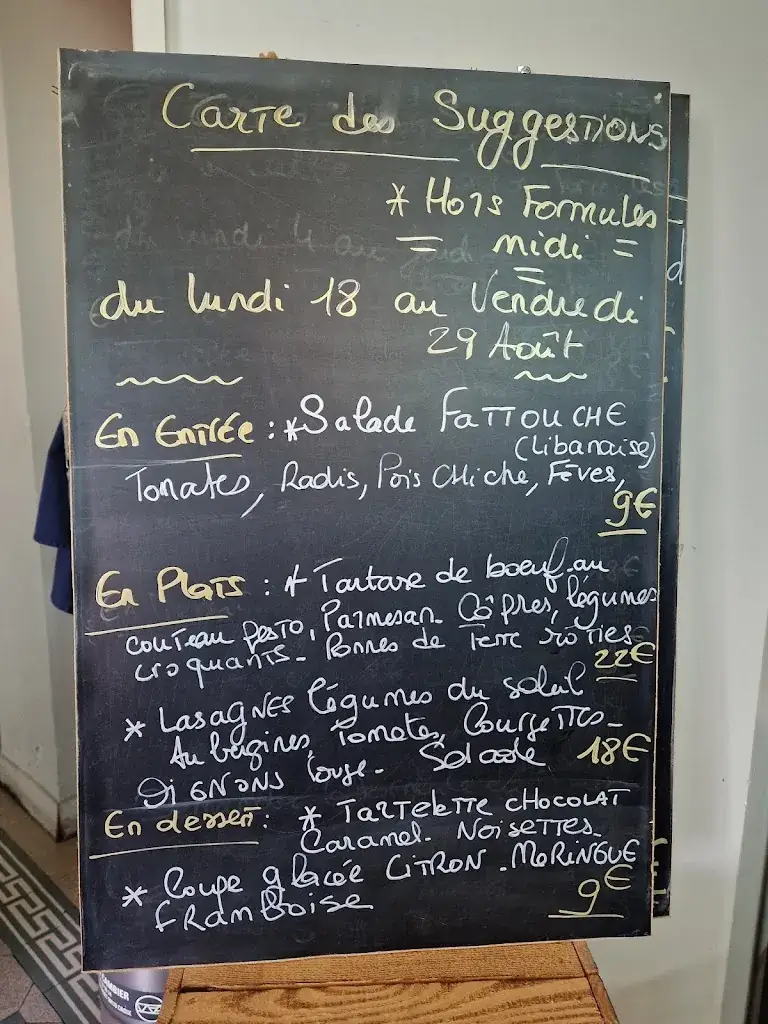 Carte des Suggestions
* Hors Formules
= midi =
du lundi 18 au Vendredi
29 Août
En Entrée : *Salade FATTOUCHE
(Libanaise)
Tomates, Radis, Pois Chiche, Fèves,
9€
En Plats : * Tartare de boeuf au
couteau pesto, Parmesan. Câpres, légumes
croquants. Pommes de terre rôties
22€
* Lasagnes légumes du soleil
Aubergines, Tomate, Courgettes-
Oignons rouge. Salade 18€
En dessert : * Tartelette CHOCOLAT
Caramel. Noisettes.
* Coupe glacée CITRON. MERINGUE
Framboise
9€